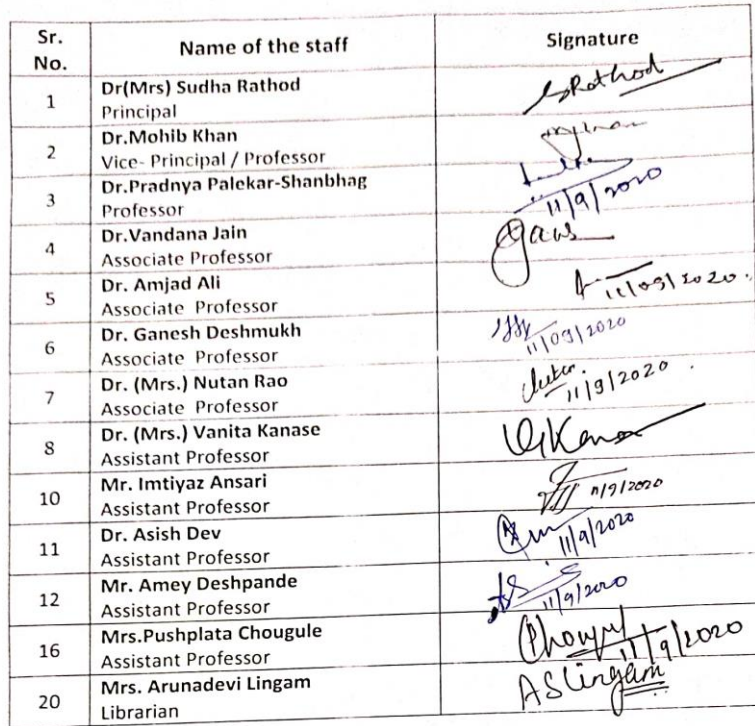 Sr. No. Name of the staff Signature
1 Dr(Mrs) Sudha Rathod SRathod
Principal
2 Dr.Mohib Khan
Vice- Principal / Professor
3 Dr.Pradnya Palekar-Shanbhag
Professor 11/9/2020
4 Dr.Vandana Jain
Associate Professor
5 Dr. Amjad Ali
Associate Professor 11/09/2020.
6 Dr. Ganesh Deshmukh
Associate Professor 11/09/2020
7 Dr. (Mrs.) Nutan Rao
Associate Professor 11/9/2020.
8 Dr. (Mrs.) Vanita Kanase
Assistant Professor
10 Mr. Imtiyaz Ansari
Assistant Professor 11/9/2020
11 Dr. Asish Dev
Assistant Professor 11/9/2020
12 Mr. Amey Deshpande
Assistant Professor 11/9/2020
16 Mrs.Pushplata Chougule
Assistant Professor 11/9/2020
20 Mrs. Arunadevi Lingam ASLingam
Librarian